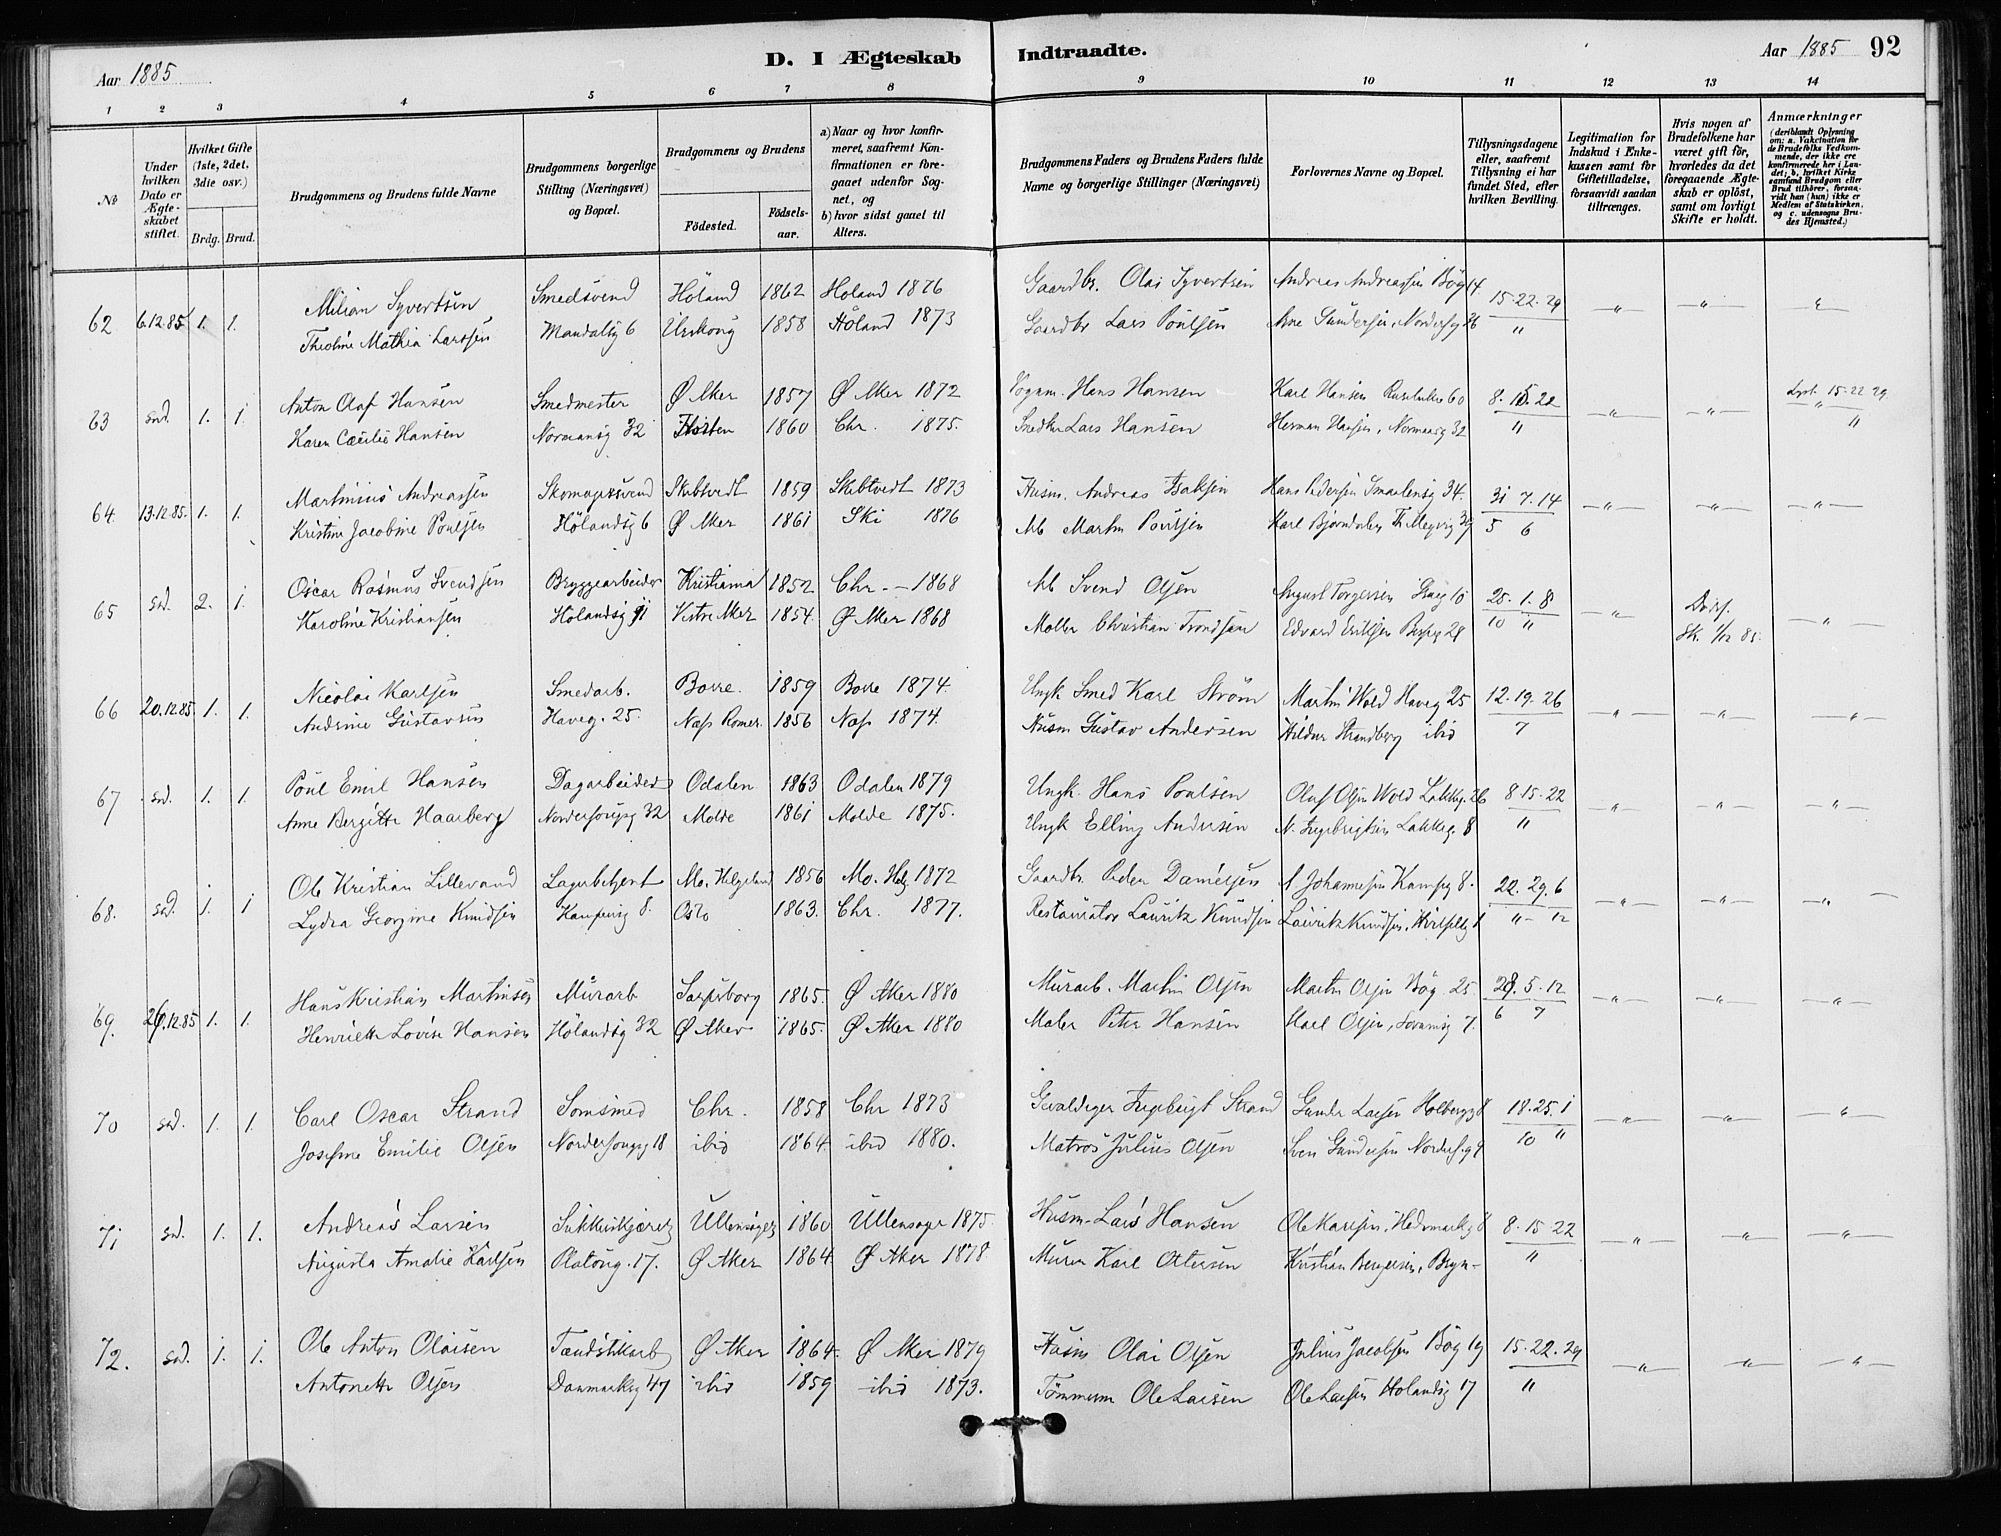 Aar 1885
D. I Ægteskab Indtraadte.
Aar 1885 92
1 2 3 4 5 6 7 8 9 10 11 12 13 14
No
Under hvilken Dato er Ægteskabet stiftet.
Hvilket Gifte (1ste, 2det. 3die osv.)
Brdg. Brud.
Brudgommens og Brudens fulde Navne
Brudgommens borgerlige Stilling (Næringsvei) og Bopæl.
Brudgommens og Brudens
Fødested. Fødselsaar.
a) Naar og hvor konfirmeret, saafremt Konfirmationen er foregaaet udenfor Sognet, og
b) hvor sidst gaaet til Alters.
Brudgommens Faders og Brudens Faders fulde Navne og borgerlige Stillinger (Næringsvei)
Forlovernes Navne og Bopæl.
Tillysningsdagene eller, saafremt Tillysning ei har fundet Sted, efter hvilken Bevilling.
Legitimation for Indskud i Enkekassen samt for Giftetilladelse, forsaavidt saadan tiltrænges.
Hvis nogen af Brudefolkene har været gift før, hvorledes da det foregaaende Ægteskab er opløst, samt om lovligt Skifte er holdt.
Anmærkninger (deriblandt Oplysning om: a. Vakcination for de Brudefolks Vedkommende, der ikke ere konfirmerede her i Landet; b. hvilket Kirkesamfund Brudgom eller Brud tilhører, forsaavidt han (hun) ikke er Medlem af Statskirken, og c. udensogns Brudes Hjemsted.)
62 6.12.85 1. 1. Milian Syvertsen Smedsvend Höland 1862 Höland 1876 Gaardbr. Olai Syvertsen Andreas Andreassen Bøg 14. 15-22-29 " " "
Theoline Mathea Larssen Mandalsg 6 Urskoug 1858 Höland 1873 Gaardbr Lars Poulsen Arne Gundersen, Nordersg 26 11
63 sad. 1. 1. Anton Olaf Hansen Smedmester Ø Aker 1857 Ø Aker 1872 Vogнm. Hans Hansen Karl Hansen 60 8. 15. 22 " " Lyst. 15-22 29
Karen Cæcilie Hansen Normansg 32 Horten 1860 Chr. 1875. Smedkr Lars Hansen Herman Hansen, Normansg 32 11 11
64. 13.12.85. 1. 1. Martinius Andreassen Skomagersvend Skibtvedt 1859 Skibtvedt 1873 Husm. Andreas Isaksen Hans Pedersen Smaalensg 34. 31 7. 14 " " "
Kristine Jacobine Poulsen Hölandsg 6 Ø Aker 1861 Ski 1876 Arb Martin Poulsen Karl Bjørndalen Th Meyersg 39 5 6
65 sad. 2. 1. Oscar Rasmus Svendsen Bryggearbeider Kristiania 1852 Chr. - 1868 Arb Svend Olsen August Torgersen 10 25. 1. 8 " "
Karoline Kristiansen Hölandsg 11 Vestre Aker 1854. Ø Aker 1868 Møller Christian Trondsen Edvard Eriksen Bergsg 28 10 11 Sk. 1/12 85.
66 20.12.85 1. 1. Nicolai Karlsen Smedarb. Borre. 1859 Borre 1874. Ungk Smed Karl Strøm Martin Wold Haveg 25 12. 19. 26 " " "
Andrine Gustavsen Haveg. 25. Næs Romer. 1856 Næs 1874. Husm Gustav Andersen Hildur Strandberg ibid 7
67 sad. 1. 1. Poul Emil Hansen Dagarbeider Odalen 1863 Odalen 1879 Ungk. Hans Poulsen Oluf Olsen Wold Lakkeg. 26 8. 15. 22 " " "
Anne Bergitte Haarberg Norderhougsg 32 Molde 1861 Molde 1875. Ungk Elling Andersen N. Ingebrigtsen Lakkeg. 8 11
68. sad. 1. 1 Ole Kristian Lillevand Lagerbetjent Mo. Helgeland 1856 Mo. Helg 1872 Gaardbr. Peder Danielsen A Johannesen Kampg 8. 22. 29. 6 " " "
Lydia Georgine Knudsen Kampensg 8. Oslo 1863. Chr. 1877. Restauratør Lauritz Knudsen Lauritz Knudsen, Hvitfeldtg 1 11 - 12
69. 26.12.85 1. 1. Hans Kristian Martinsen Murarb Sarpsborg 1865. Ø Aker 1880 Murarb. Martin Olsen Martin Olsen Bøg. 25. 28. 5. 12 " " "
Henriette Lovise Hansen Hölandsg 32 Ø Aker 1865. Ø Aker 1880 Maler Peter Hansen Karl Olsen, 7. 6 7
70 sad. 1. 1. Carl Oscar Strand Tomsmed Chr. 1858 Chr 1873 Gevaldiger Ingebrigt Strand Gunder Larsen Holbergsg 8 18. 25. 1 " " "
Josefine Emilie Olsen Norderhougsg 18 ibid 1864. ibid 1880. Matros Julius Olsen Sven Gundersen Norderhsg 9 10 11
71 sad. 1. 1. Andreas Larsen Ullensager 1860 Ullensager 1875. Husm. Lars Hansen Ole Karlsen, Hedemarksg 8 8. 15 22 " " "
Augusta Amalie Karlsen Platoug. 17. Ø Aker 1864. Ø Aker 1878 Murer Karl Ottersen Kristian Bergersen, Bryn- 11
72. sad. 1. 1. Ole Anton Olaisen Tændstikarb Ø Aker 1864. Ø Aker 1879 Husm Olai Olsen Julius Jacobsen Bøg 19 15. 22. 29 " " "
Antonette Olsen Danmarksg 47 ibid 1859 ibid 1873. Tømmerm Ole Larsen Ole Larsen Hölandsg 17 11